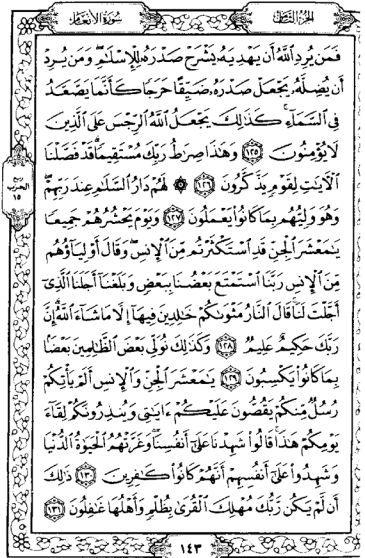 الجزء الثامن
سورة الأنعام
فَمَن يُرِدِ ٱللَّهُ أَن يَهْدِيَهُۥ يَشْرَحْ صَدْرَهُۥ لِلْإِسْلَٰمِ ۖ وَمَن يُرِدْ
أَن يُضِلَّهُۥ يَجْعَلْ صَدْرَهُۥ ضَيِّقًا حَرَجًا كَأَنَّمَا يَصَّعَّدُ
فِى ٱلسَّمَآءِ ۚ كَذَٰلِكَ يَجْعَلُ ٱللَّهُ ٱلرِّجْسَ عَلَى ٱلَّذِينَ
لَا يُؤْمِنُونَ ۝١٢٥ وَهَٰذَا صِرَٰطُ رَبِّكَ مُسْتَقِيمًا ۗ قَدْ فَصَّلْنَا
ٱلْـَٔايَٰتِ لِقَوْمٍ يَذَّكَّرُونَ ۝١٢٦ ۞ لَهُمْ دَارُ ٱلسَّلَٰمِ عِندَ رَبِّهِمْ ۖ
وَهُوَ وَلِيُّهُم بِمَا كَانُوا۟ يَعْمَلُونَ ۝١٢٧ وَيَوْمَ يَحْشُرُهُمْ جَمِيعًا
يَٰمَعْشَرَ ٱلْجِنِّ قَدِ ٱسْتَكْثَرْتُم مِّنَ ٱلْإِنسِ ۖ وَقَالَ أَوْلِيَآؤُهُم
مِّنَ ٱلْإِنسِ رَبَّنَا ٱسْتَمْتَعَ بَعْضُنَا بِبَعْضٍ وَبَلَغْنَآ أَجَلَنَا ٱلَّذِىٓ
أَجَّلْتَ لَنَا ۚ قَالَ ٱلنَّارُ مَثْوَىٰكُمْ خَٰلِدِينَ فِيهَآ إِلَّا مَا شَآءَ ٱللَّهُ ۗ إِنَّ
رَبَّكَ حَكِيمٌ عَلِيمٌ ۝١٢٨ وَكَذَٰلِكَ نُوَلِّى بَعْضَ ٱلظَّٰلِمِينَ بَعْضًۢا
بِمَا كَانُوا۟ يَكْسِبُونَ ۝١٢٩ يَٰمَعْشَرَ ٱلْجِنِّ وَٱلْإِنسِ أَلَمْ يَأْتِكُمْ
رُسُلٌ مِّنكُمْ يَقُصُّونَ عَلَيْكُمْ ءَايَٰتِى وَيُنذِرُونَكُمْ لِقَآءَ
يَوْمِكُمْ هَٰذَا ۚ قَالُوا۟ شَهِدْنَا عَلَىٰٓ أَنفُسِنَا ۖ وَغَرَّتْهُمُ ٱلْحَيَوٰةُ ٱلدُّنْيَا
وَشَهِدُوا۟ عَلَىٰٓ أَنفُسِهِمْ أَنَّهُمْ كَانُوا۟ كَٰفِرِينَ ۝١٣٠ ذَٰلِكَ
أَن لَّمْ يَكُن رَّبُّكَ مُهْلِكَ ٱلْقُرَىٰ بِظُلْمٍ وَأَهْلُهَا غَٰفِلُونَ ۝١٣١
ربع
الحزب
١٥
١٤٣